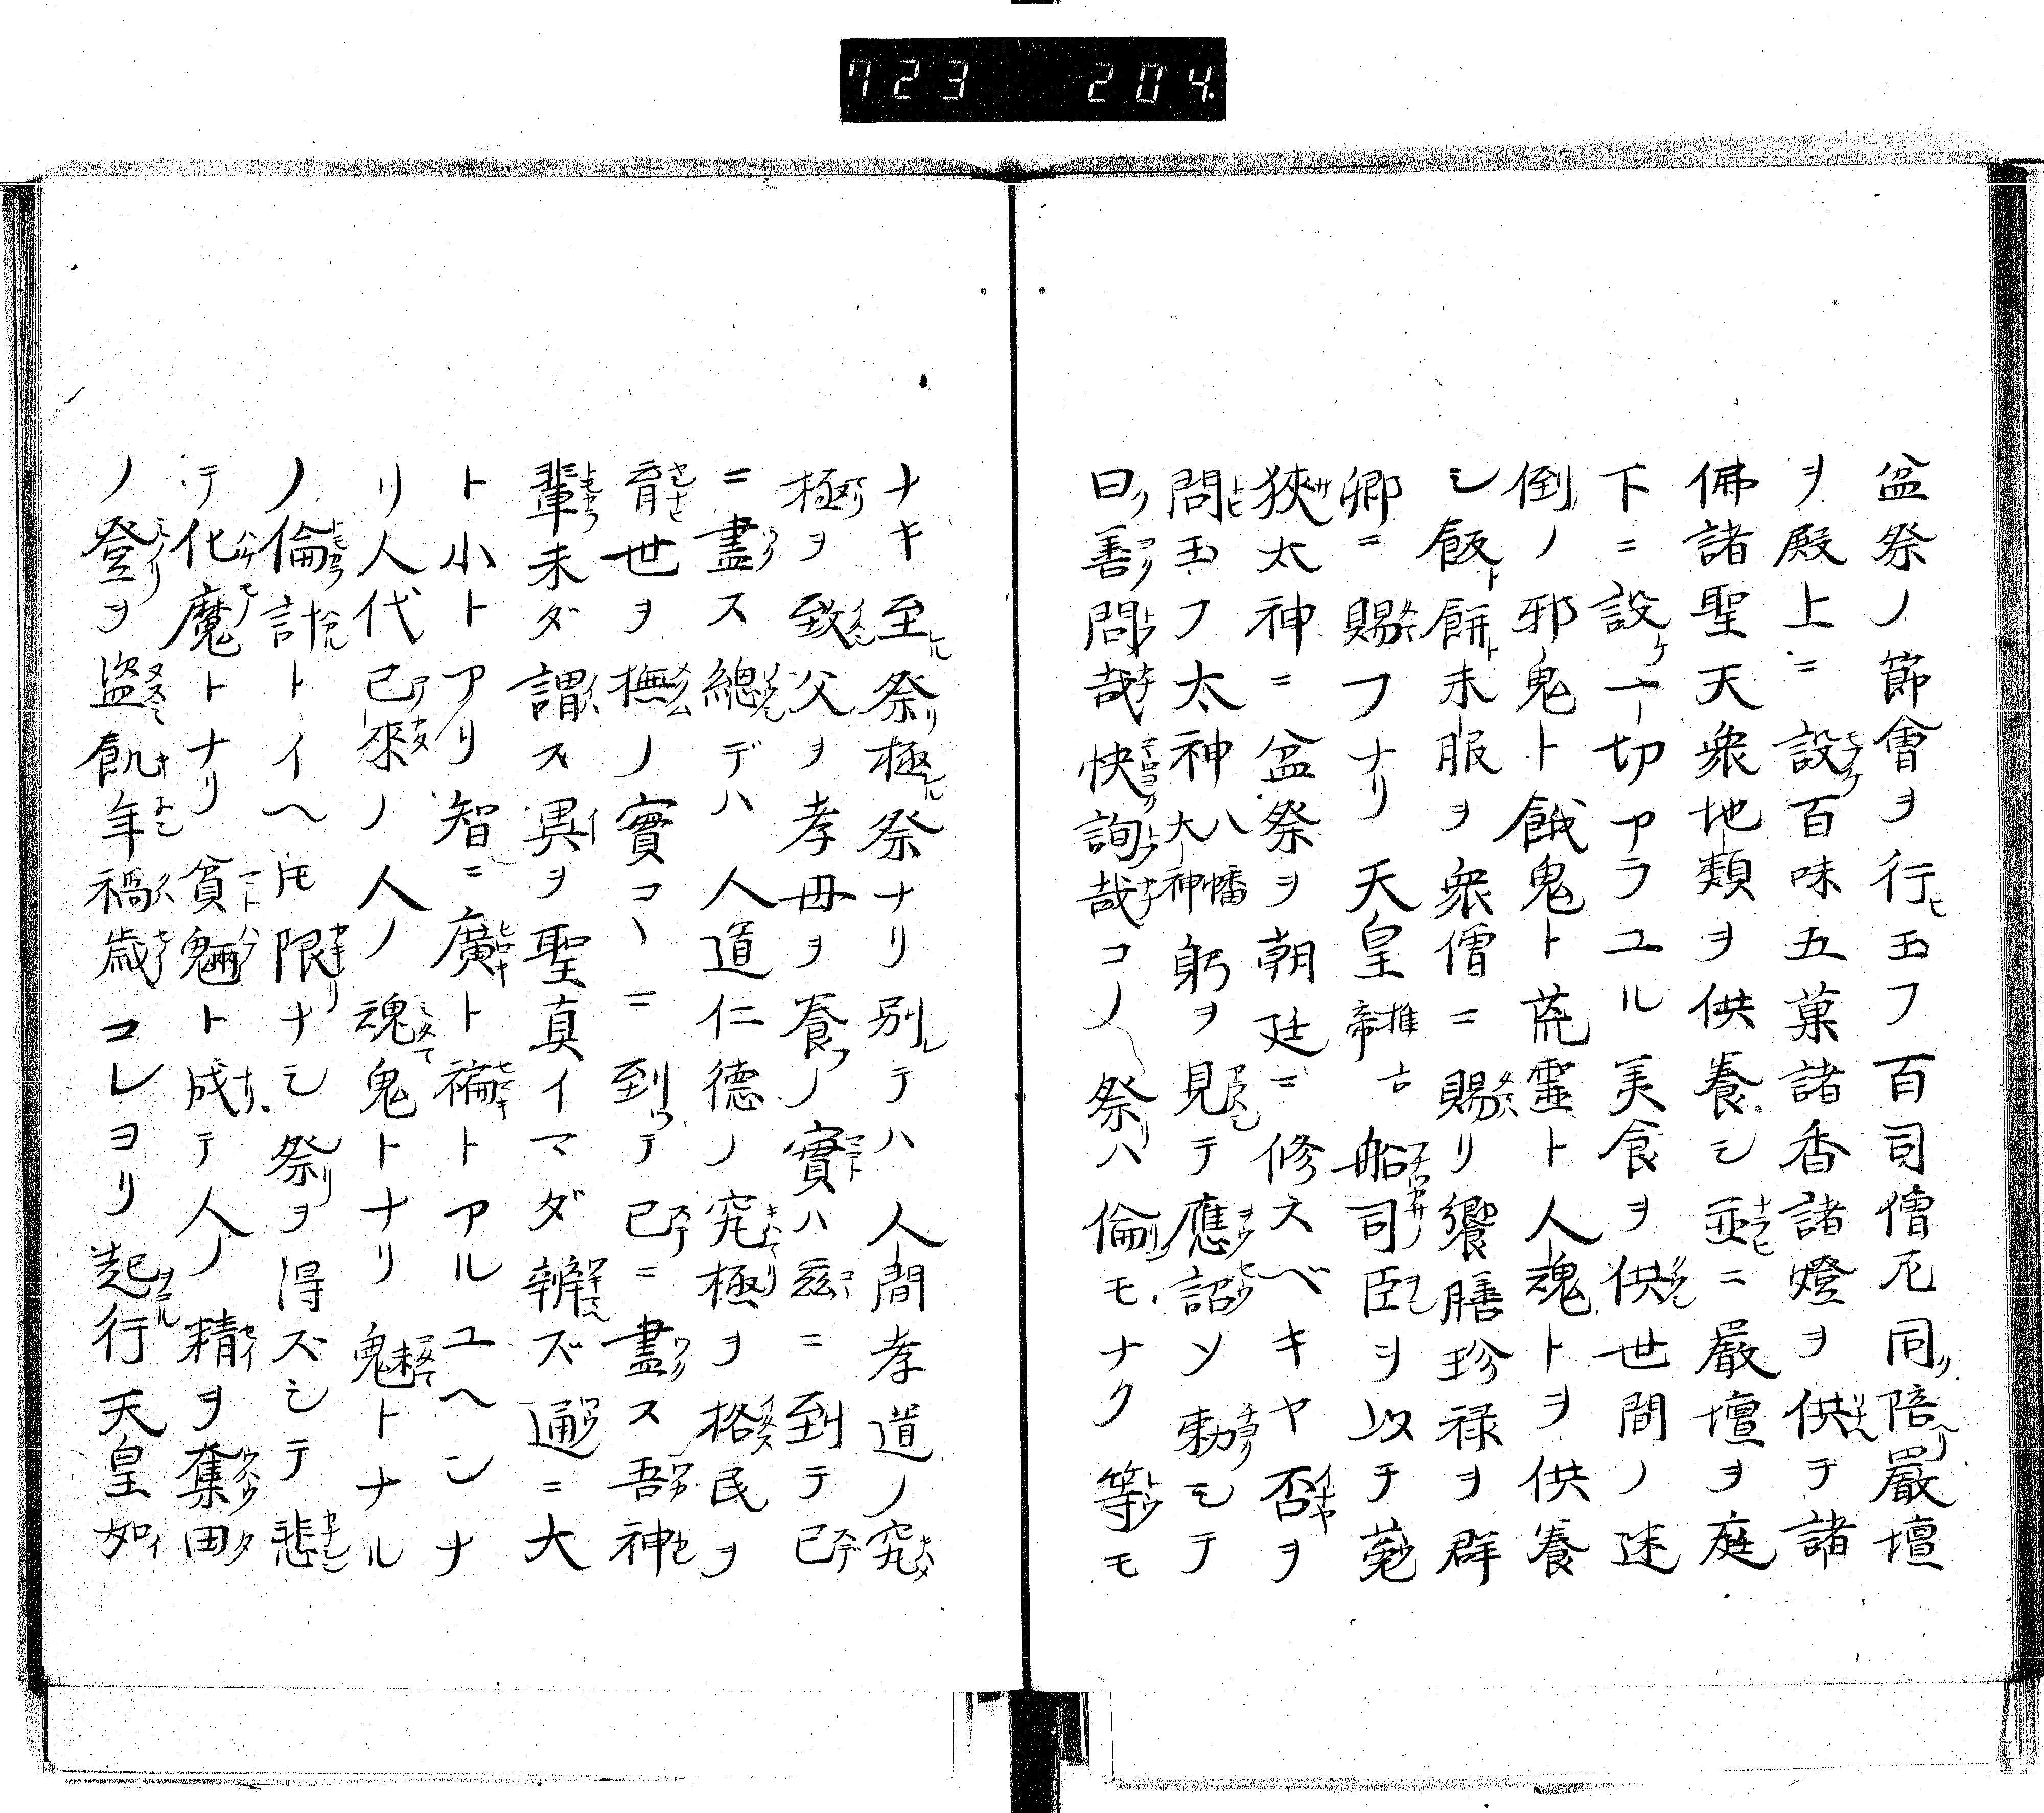 723 204.
盆祭ノ節會ヲ行ヒ玉フ百司僧尼同リ陪リ嚴壇
ヲ殿上ニ設百味五菓諸香諸燈ヲ供テ諸
佛諸聖天衆地類ヲ供養シ並ニ嚴壇ヲ庭
下ニ設ケ一切アラユル美食ヲ供世間ノ迷
倒ノ邪鬼ト餓鬼ト荒靈ト人魂トヲ供養
シ飯ト餅ト未服ヲ衆僧ニ賜リ饗膳珍禄ヲ群
卿ニ賜フナリ天皇推古帝船司臣ヲ以テ菟
狹太神ニ盆祭ヲ朝廷ニ修スベキヤ否ヲ
問玉フ太神八幡大神躬ヲ見テ應詔ソ勅モテ
曰善問哉快詢哉コノ祭リハ倫モナク等モ
ナキ至ル祭リ極ル祭ナリ別レテハ人間孝道ノ究
極リヲ致父ヲ孝母ヲ養フノ實ハ茲ニ到テ已
ニ盡ス總デハ人道仁德ノ究極ヲ格民ヲ
育世ヲ撫ノ實コヽニ到テ已ニ盡ス吾神
輩未ダ謂ス異ヲ聖真イマダ辨ズ通ニ大
ト小トアリ智ニ廣ト褊トアルユヘンナ
リ人代已來ノ人ノ魂鬼トナリ魅トナル
ノ倫計トイヘ𪜈限リナシ祭リヲ得ズシテ悲
テ化魔トナリ貧魎ト成テ人ノ精ヲ奪田
ノ登ヲ盜飢年禍歳コレヨリ起行天皇如